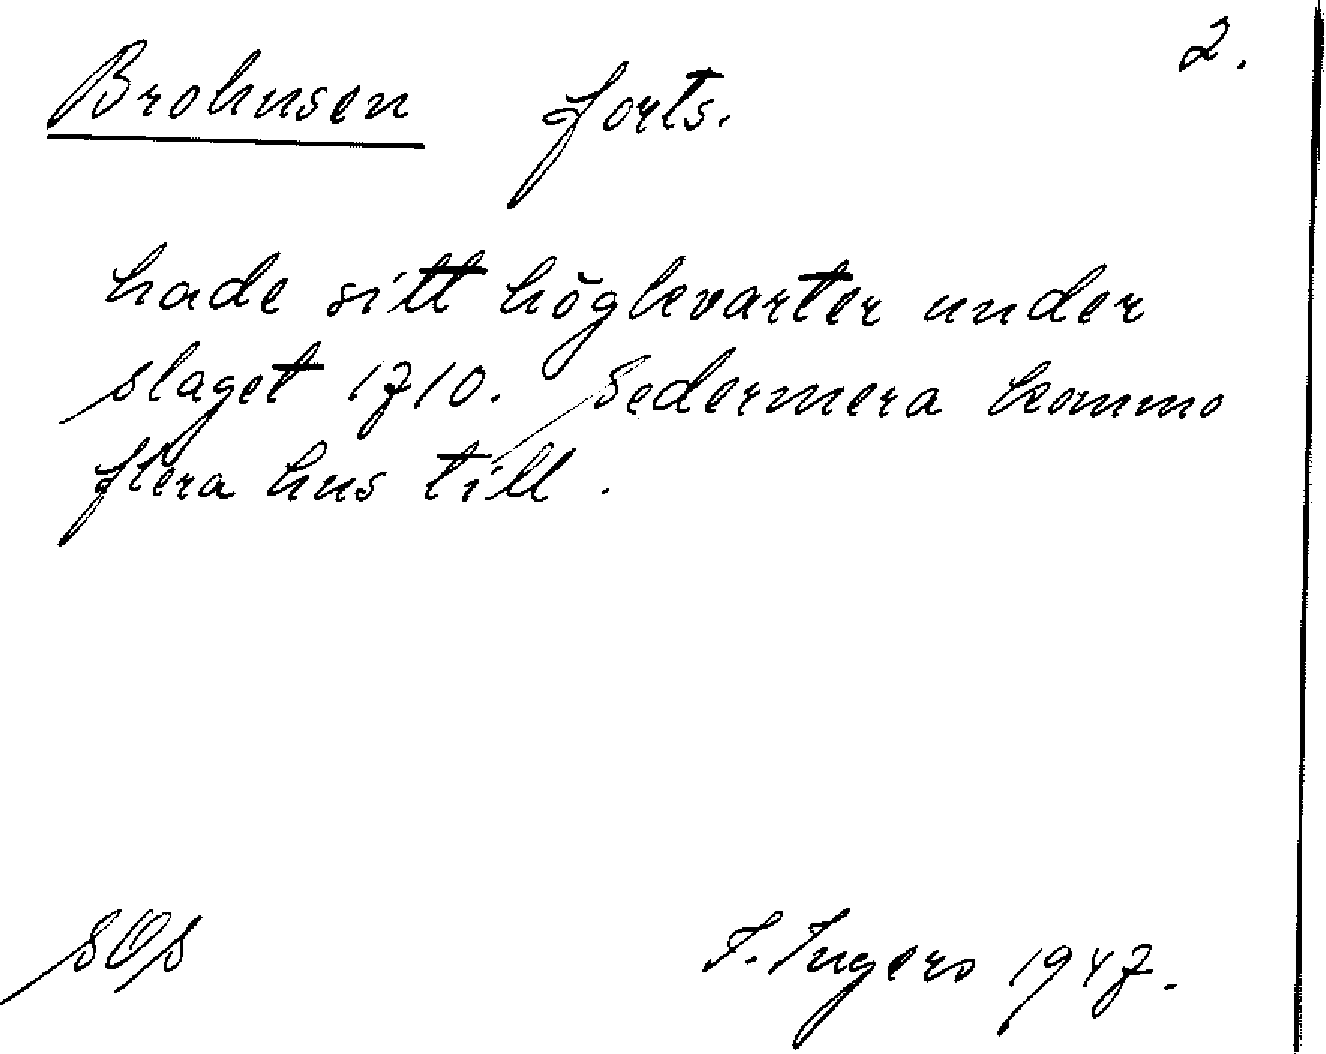 2.
Brohusen forts.
hade sitt högkvarter under
slaget 1710. Sedermera kommo
flera hus till.
SOS
I. Ingers 1947.